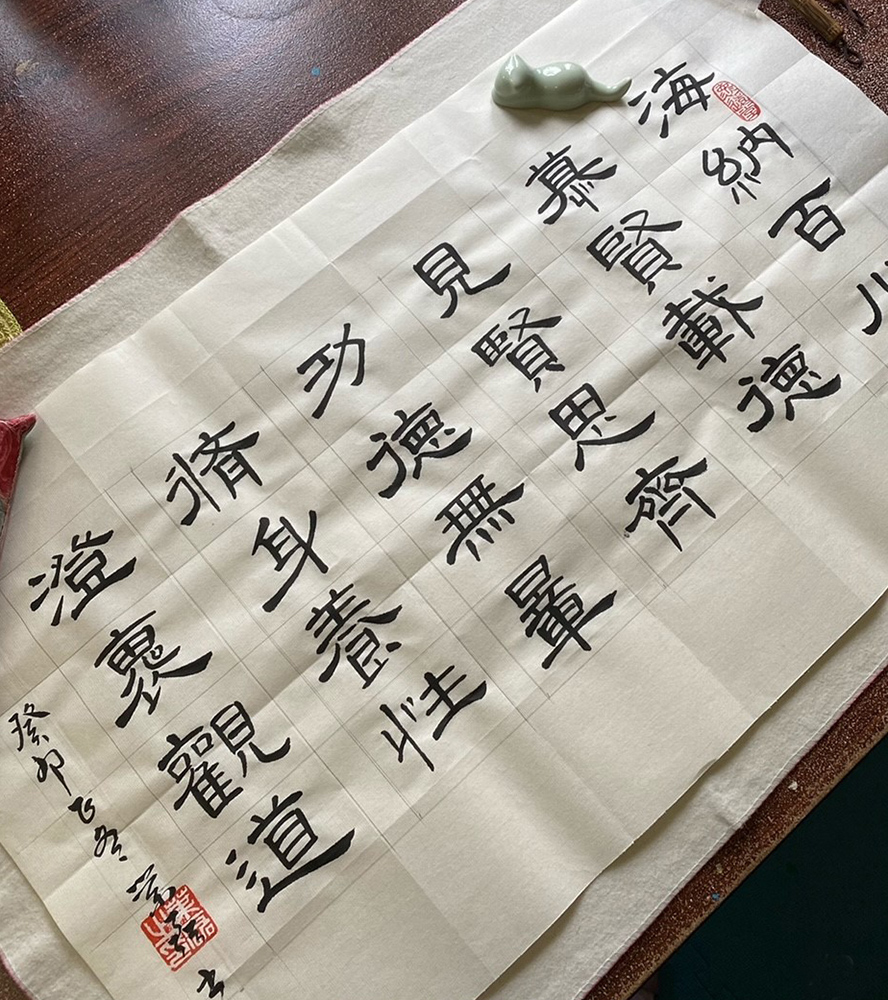 海納百川
慕賢載德
見賢思齊
功德無量
脩身養性
澄褱觀道
癸卯冬